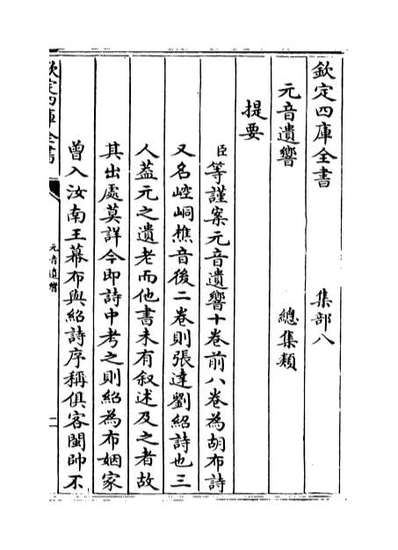 欽定四庫全書 集部八
元音遺響 總集類
提要
臣等謹案元音遺響十卷前八卷為胡布詩
又名崆峒樵音後二卷則張達劉紹詩也三
人葢元之遺老而他書未有叙述及之者故
其出處莫詳今即詩中考之則紹為布姻家
曾入汝南王幕布與紹詩序稱俱客閩帥不
欽定四庫全書
元音遺響